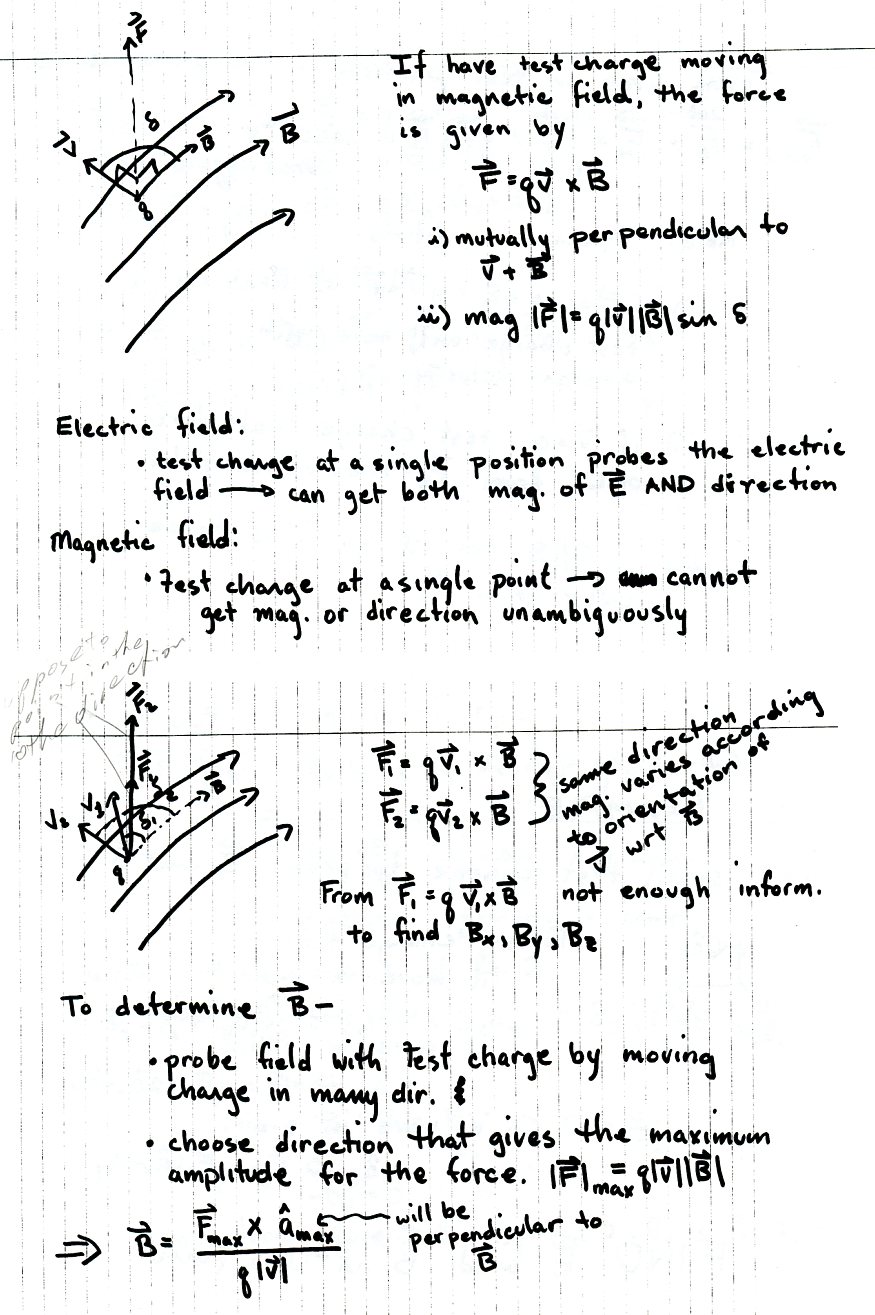 F⃗
δ
v⃗
B⃗
B⃗
q
If have test charge moving
in magnetic field, the force
is given by
F⃗ = qv⃗ × B⃗
i) mutually perpendicular to
v⃗ + B⃗
ii) mag |F⃗| = q|v⃗||B⃗| sin δ
Electric field:
• test charge at a single position probes the electric
field → can get both mag. of E⃗ AND direction
Magnetic field:
• Test charge at a single point → cannot
get mag. or direction unambiguously
oppose to
in the
direction
F⃗₂
F⃗₁
δ₂
B⃗
v₁
v₂
δ₁
q
F⃗₁ = qv⃗₁ × B⃗
F⃗₂ = qv⃗₂ × B⃗
same direction
mag. varies according
to orientation of
v⃗ wrt B⃗
From F⃗₁ = q v⃗₁ × B⃗ not enough inform.
to find Bx, By, Bz
To determine B⃗ –
• probe field with Test charge by moving
charge in many dir. &
• choose direction that gives the maximum
amplitude for the force. |F⃗|max = q|v⃗||B⃗|
⇒ B⃗ = F⃗max × âmax / q|v⃗| ← will be
perpendicular to
B⃗